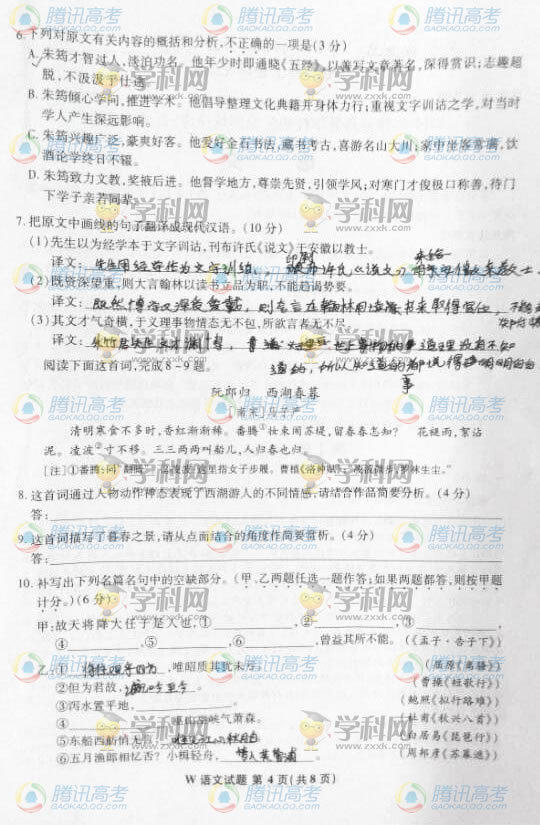 6.下列对原文有关内容的概括和分析,不正确的一项是(3分)
A.朱筠才智过人,淡泊功名。他年少时即通晓《五经》,以善写文章著名,深得赏识;志趣超
脱,不汲汲于仕途。
B.朱筠倾心学问,推进学术。他倡导整理文化典籍并身体力行;重视文字训诂之学,对当时
学人产生深远影响。
C.朱筠兴趣广泛,豪爽好客。他爱好金石书法,藏书考古,喜游名山大川;家中坐客常满,饮
酒论学终日不辍。
D.朱筠致力文教,奖被后进。他督学地方,尊崇先贤,引领学风;对寒门才俊极口称善,待门
下学子亲若同辈。
7.把原文中画线的句子翻译成现代汉语。(10分)
(1)先生以为经学本于文字训诂,刊布许氏《说文》于安徽以教士。
译文:
(2)既资深望重,则大言翰林以读书立品为职,不能趋谒势要。
译文:
(3)其文才气奇横,于义理事物情态无不包,所欲言者无不尽。
译文:
阅读下面这首词,完成8~9题。
阮郎归 西湖春暮
[南宋]马子严
清明寒食不多时,香红渐渐稀。番腾①妆束闹苏堤,留春春怎知? 花褪雨,絮沾
泥。凌波②寸不移。三三两两叫船儿,人归春也归。
[注]①番腾:同“翻腾”。②凌波:这里指女子步履。曹植《洛神赋》:“凌波微步,罗袜生尘。”
8.这首词通过人物动作神态表现了西湖游人的不同情感,请结合作品简要分析。(4分)
答:
9.这首词描写了暮春之景,请从点面结合的角度作简要赏析。(4分)
答:
10.补写出下列名篇名句中的空缺部分。(甲、乙两题任选一题作答;如果两题都答,则按甲题
计分。)(6分)
甲:故天将降大任于是人也,① ,② ,③ ,
④ ,⑤ ,⑥ ,曾益其所不能。(《孟子·告子下》)
乙:① ,唯昭质其犹未亏。 (屈原《离骚》)
②但为君故, 。 (曹操《短歌行》)
③泻水置平地, 。 (鲍照《拟行路难》)
④ ,巫山巫峡气萧森。 (杜甫《秋兴八首》)
⑤东船西舫悄无言, (白居易《琵琶行》)
⑥五月渔郎相忆否?小楫轻舟, (周邦彦《苏幕遮》)
W 语文试题 第 4 页(共 8 页)